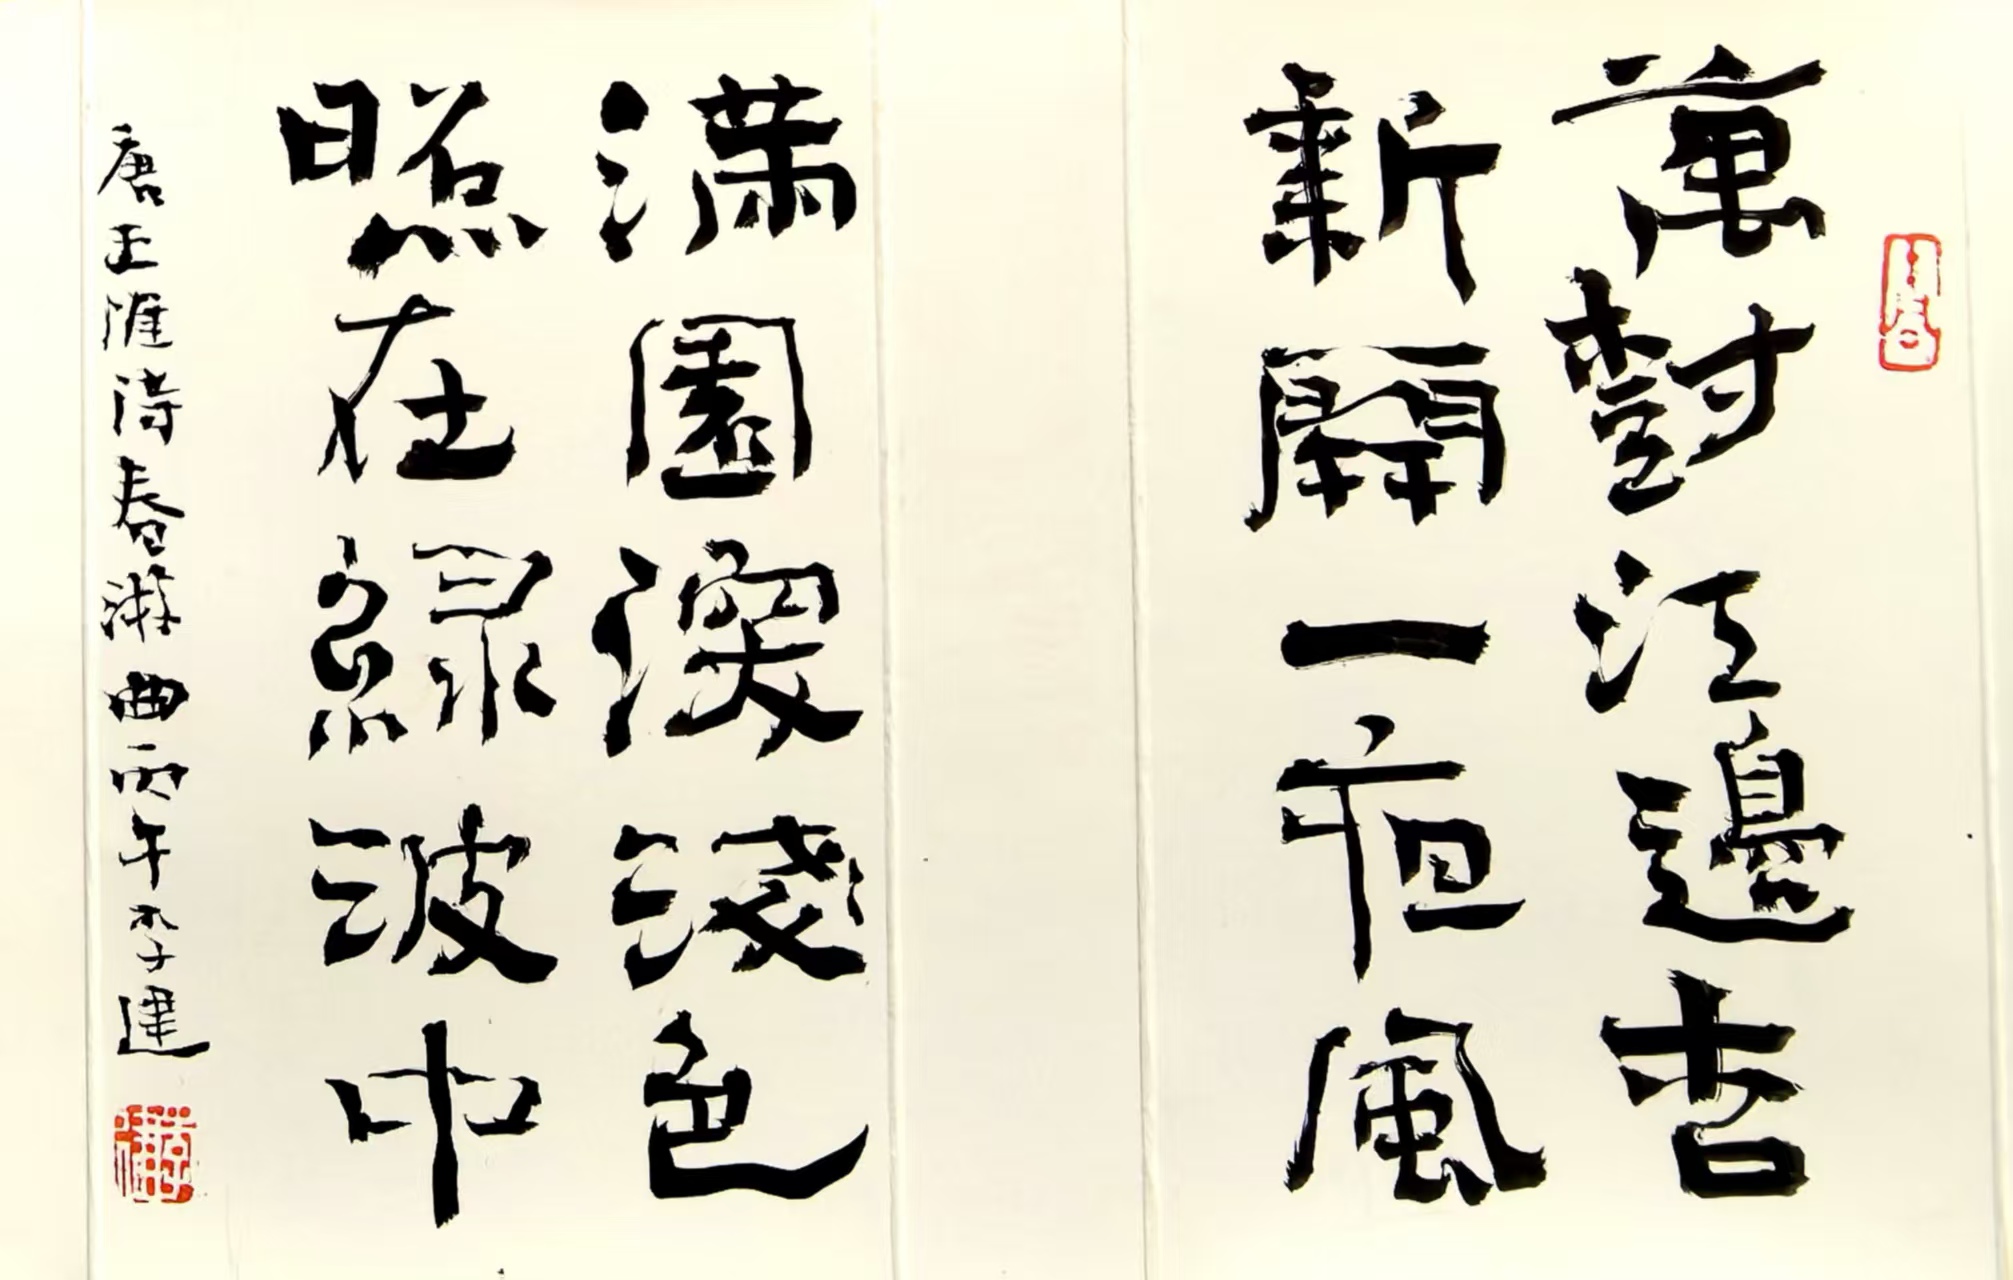 萬樹江邊杏
新開一夜風
滿園深淺色
照在綠波中
唐王涯詩春游曲丙午李建